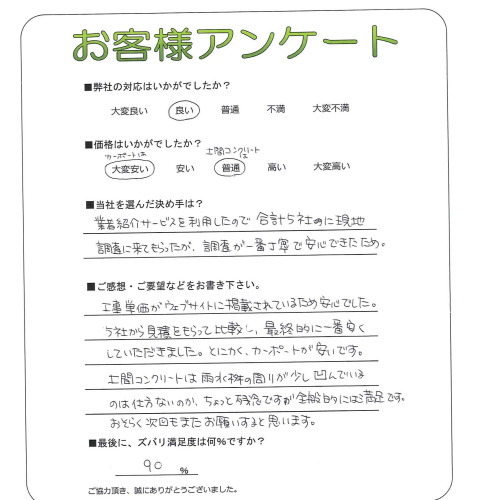 お客様アンケート
■弊社の対応はいかがでしたか？
大変良い 良い 普通 不満 大変不満
■価格はいかがでしたか？
カーポートは 土間コンクリートは
大変安い 安い 普通 高い 大変高い
■当社を選んだ決め手は？
業者紹介サービスを利用したので 合計5社の に現地
調査に来てもらったが、調査が一番丁寧で安心できたため。
■ご感想・ご要望などをお書き下さい。
工事単価がウェブサイトに掲載されているため安心でした。
5社から見積をもらって比較し、最終的に一番安く
していただきました。とにかく、カーポートが安いです。
土間コンクリートは雨水桝の周りが少し凹んでいる
のは仕方ないのか、ちょっと残念ですが全般的には満足です。
おそらく次回もまたお願いすると思います。
■最後に、ズバリ満足度は何%ですか？
90 %
ご協力頂き、誠にありがとうございました。